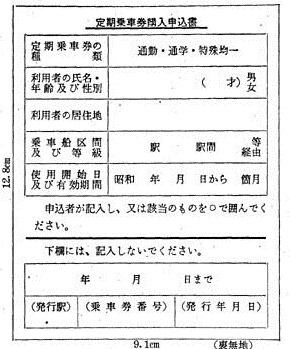 定期乗車券購入申込書
定期乗車券の
種類
通勤・通学・特殊均一
利用者の氏名・
年齢及び性別
（　才）男
女
利用者の居住地
乗車船区間
及び等級
駅　駅間　等
経由
使用開始日
及び有効期間
昭和　年　月　日から　箇月
申込者が記入し、又は該当のものを○で囲んでく
ださい。
下欄には、記入しないでください。
年　月　日まで
（発行駅）
（乗車券番号）
（発行年月日）
12.8cm
9.1cm
（裏無地）